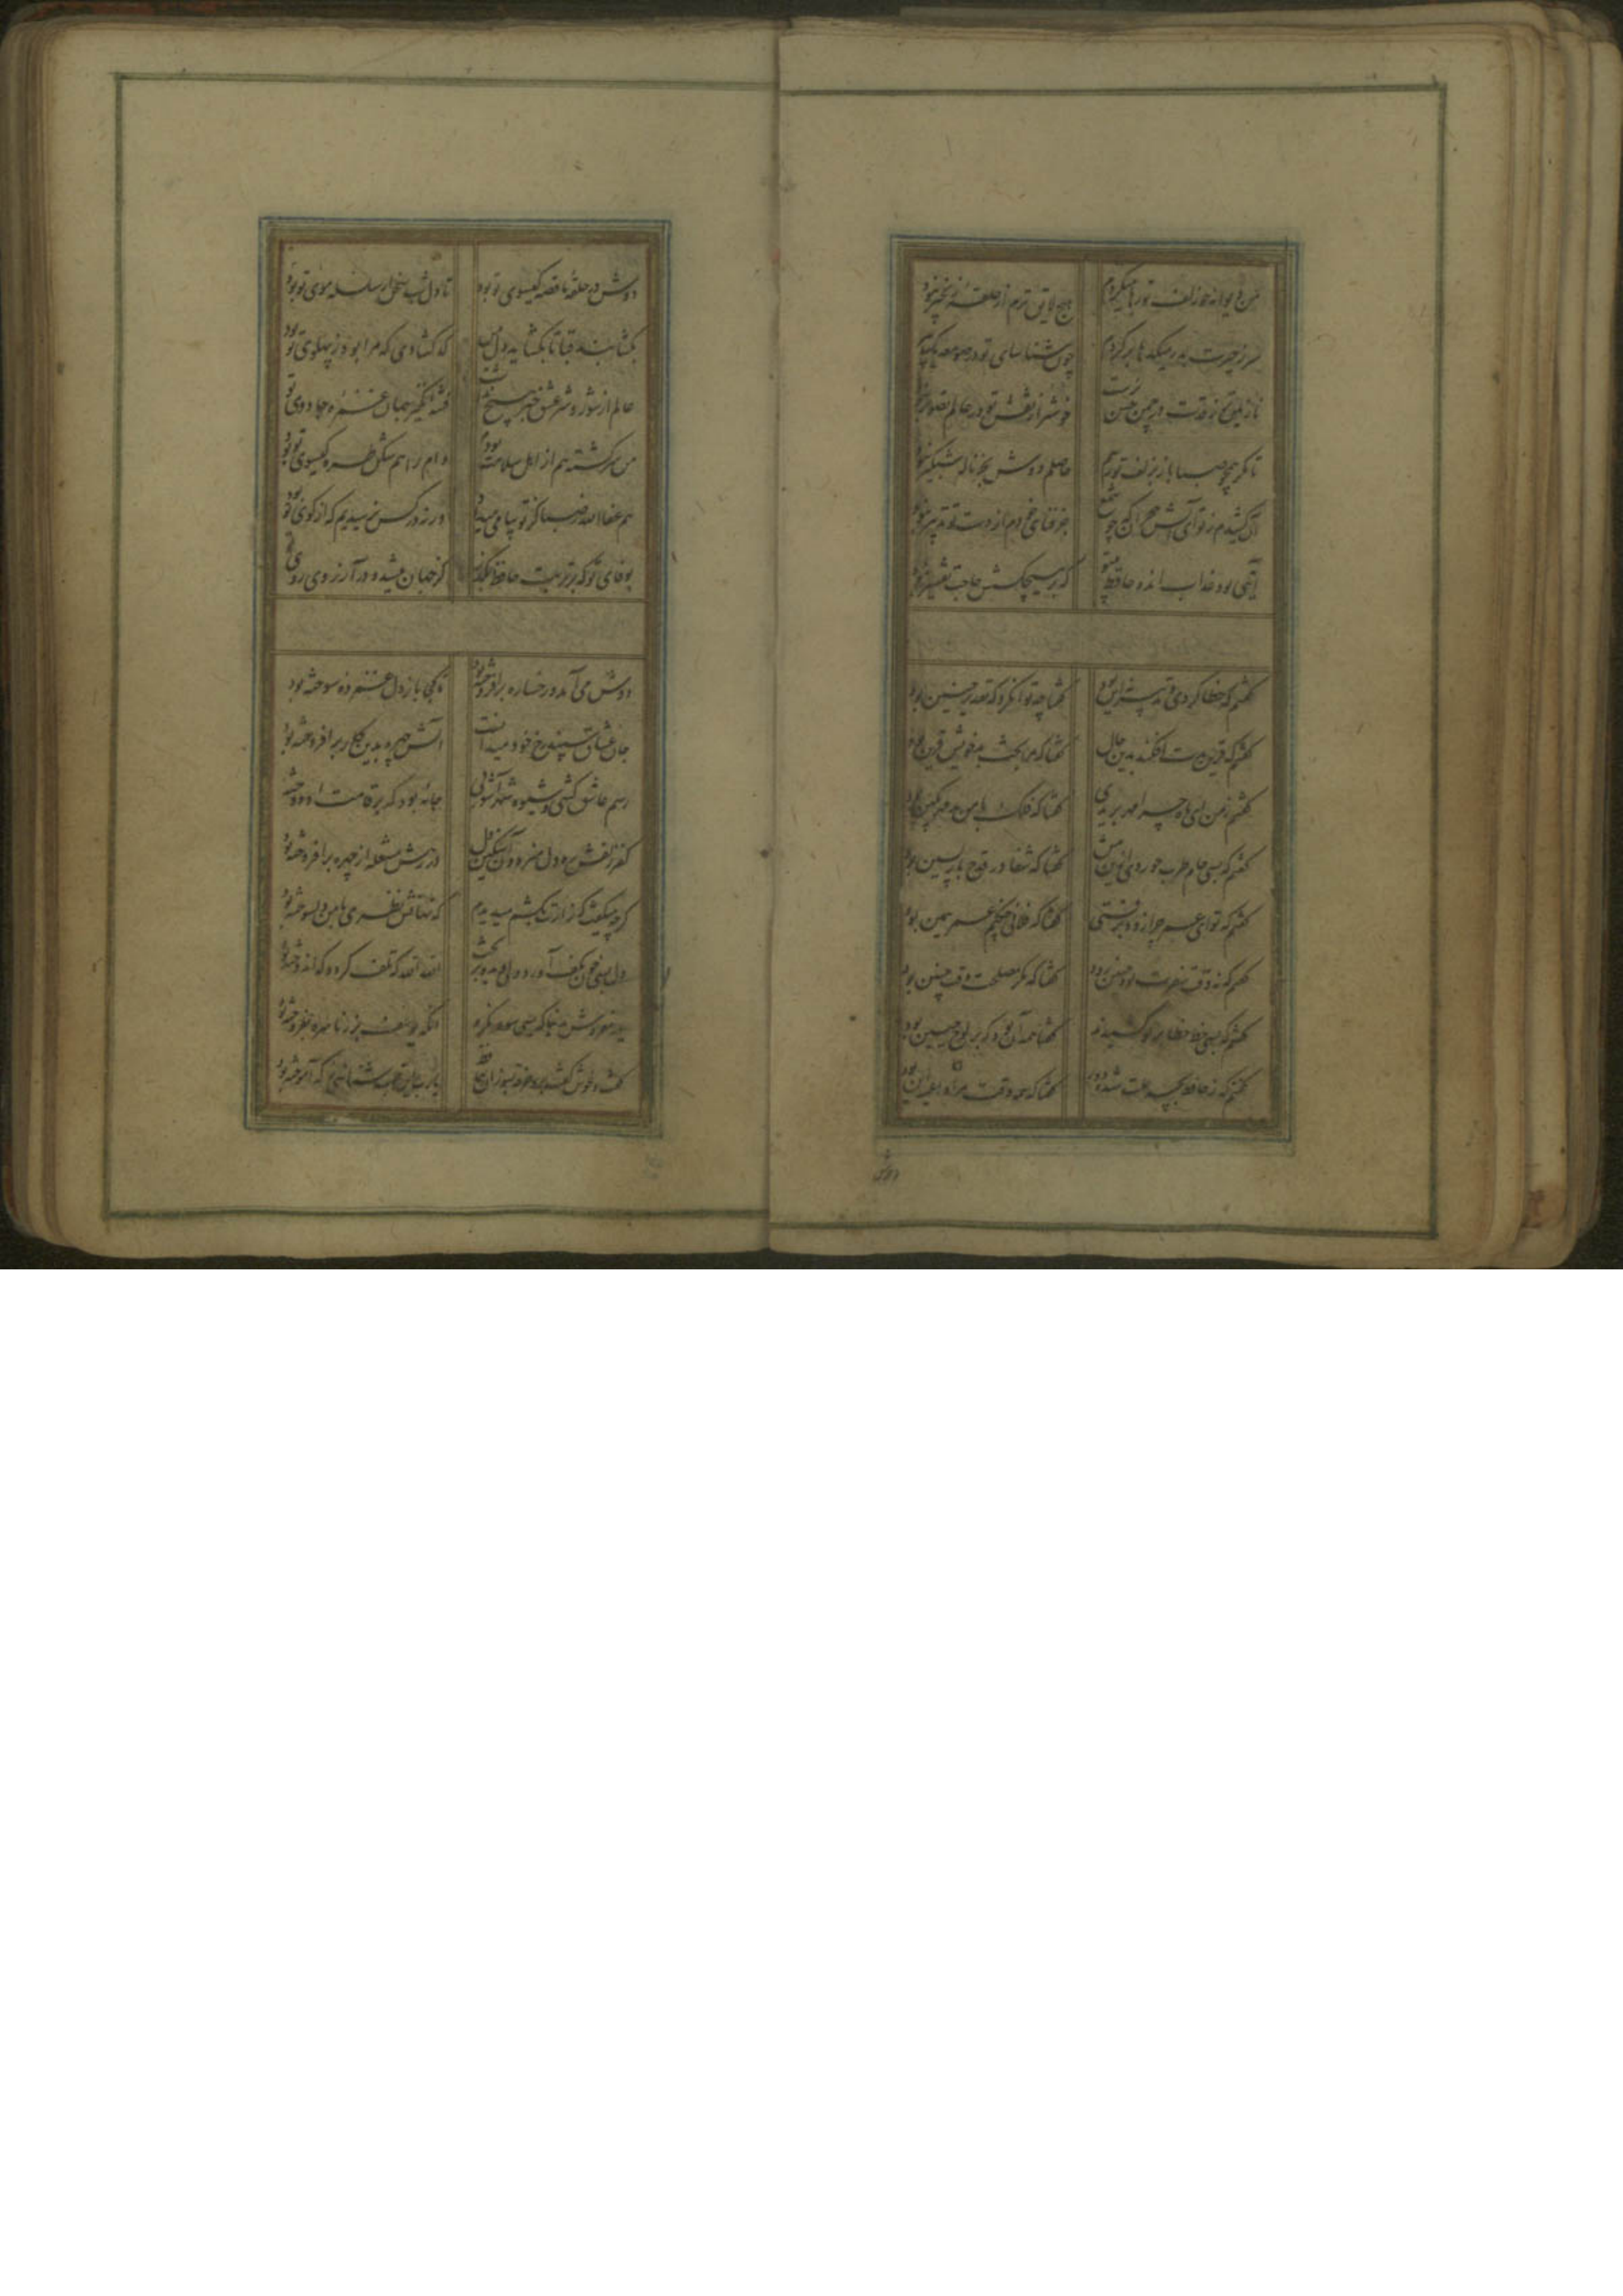 من دیوانه چو زلف تو رها میکردم هیچ لایق ترم از حلقه زنجیر نبود
سر ز حیرت بدر میکدها بر کردم چون شناسای تو در صومعه یک پیر نبود
نازنین تر ز قدت در چمن حسن نرست خوشتر از نقش تو در عالم تصویر نبود
تا مگر همچو صبا باز بزلف تو رسم حاصلم دوش بجز ناله شبگیر نبود
آن کشیدم ز تو ای آتش هجران که چو شمع جز فنای خودم از دست تو تدبیر نبود
آیتی بود عذاب انده حافظ بی تو که بر هیچکسش حاجت تفسیر نبود
گفتم که خطا کردی و تدبیر نه این بود گفتا چه توان کرد که تقدیر چنین بود
گفتم که قرین بدت افکند بدین حال گفتا که مرا بخت بد خویش قرین بود
گفتم ز من ای ماه چرا مهر بریدی گفتا که فلک با من بد مهر بکین بود
گفتم که بسی جام طرب خوردی ازین پیش گفتا که شفا در قدح بازپسین بود
گفتم که تو ای عمر چرا زود برفتی گفتا که فلانی چکنم عمر همین بود
گفتم که نه وقت سفرت بود چنین زود گفتا که مگر مصلحت وقت چنین بود
گفتم که بسی خط خطا بر تو کشیدند گفتا همه آن بود که بر لوح جبین بود
گفتم که ز حافظ بچه علت شده دور گفتا که همه وقت مرا داعیه این بود
دوش
دوش در حلقه ما قصه گیسوی تو بود تا دل شب سخن از سلسله موی تو بود
بگشا بند قبا تا بگشاید دل من که گشادی که مرا بود ز پهلوی تو بود
عالم از شور و شر عشق خبر هیچ نداشت فتنه انگیز جهان غمزه جادوی تو
من سرگشته هم از اهل سلامت بودم دام راهم شکن طره گیسوی تو بود
هم عفا الله ز صبا کز تو پیامی میداد ور نه در کس نرسیدیم که از کوی تو بود
بوفای تو که بر تربت حافظ بگذر کز جهان میشد و در آرزوی روی تو
دوش می آمد و رخساره برافروخته بود تا کجا باز دل غمزده سوخته بود
جان عشاق سپند رخ خود میدانست آتش چهره بدین کار برافروخته بود
رسم عاشق کشی و شیوه شهرآشوبی جامه بود که بر قامت او دوخته
کفر زلفش ره دین میزد و آن سنگین دل در رهش مشعله از چهره برافروخته بود
گرچه میگفت که زارت بکشم میدیدم که نهانش نظری با من دلسوخته بود
دل بسی خون بکف آورد ولی دیده بریخت الله الله که تلف کرد و که اندوخته بود
یار مفروش بدنیا که بسی سود نکرد آنکه یوسف بزر ناسره بفروخته بود
گفت و خوش گفت برو خرقه بسوزان حافظ یارب این قلب شناسی ز که آموخته بود